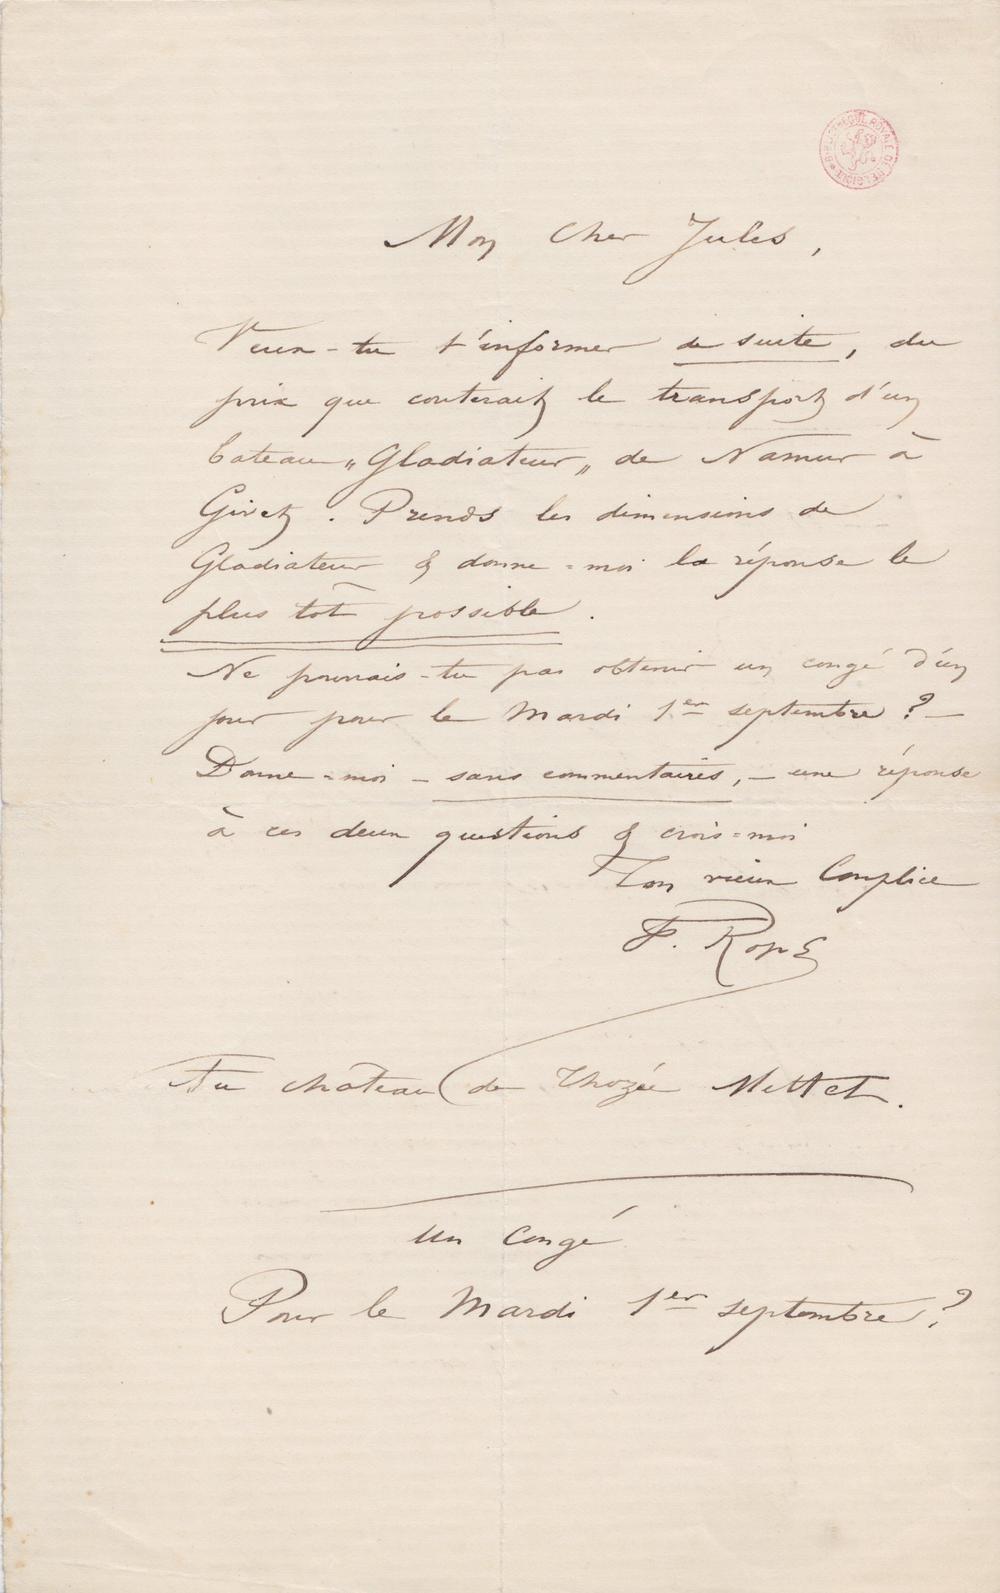 BIBLIOTHÈQUE ROYALE DE BELGIQUE
Mon Cher Jules,
Veux-tu t'informer de suite, du
prix que couterait le transport d'un
bateau „Gladiateur„ de Namur à
Givet. Prends les dimensions de
Gladiateur & donne-moi la réponse le
plus tôt possible.
Ne pourrais-tu pas obtenir un congé d'un
jour pour le Mardi 1er septembre ? –
Donne-moi – sans commentaires, – une réponse
à ces deux questions & crois-moi
Ton vieux Complice
F. Rops
Au château de Thozée Mettet.
Un Congé
Pour le Mardi 1er septembre ?